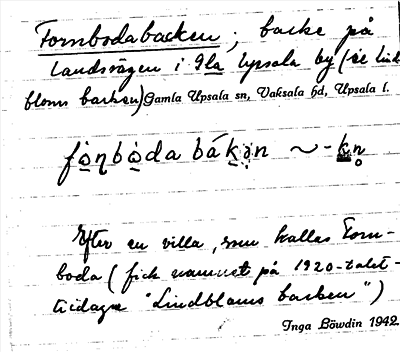 Fornbodabacken; backe på
landsvägen i Gla Upsala by (se Lind
bloms backen) Gamla Upsala sn, Vaksala hd, Upsala l.
fò̱ɳbò̱da bák̠ən ~ -kn̥
Efter en villa, som kallas Forn-
boda (fick namnet på 1920-talet -
tidagare "Lindbloms backen")
Inga Löwdin 1942.